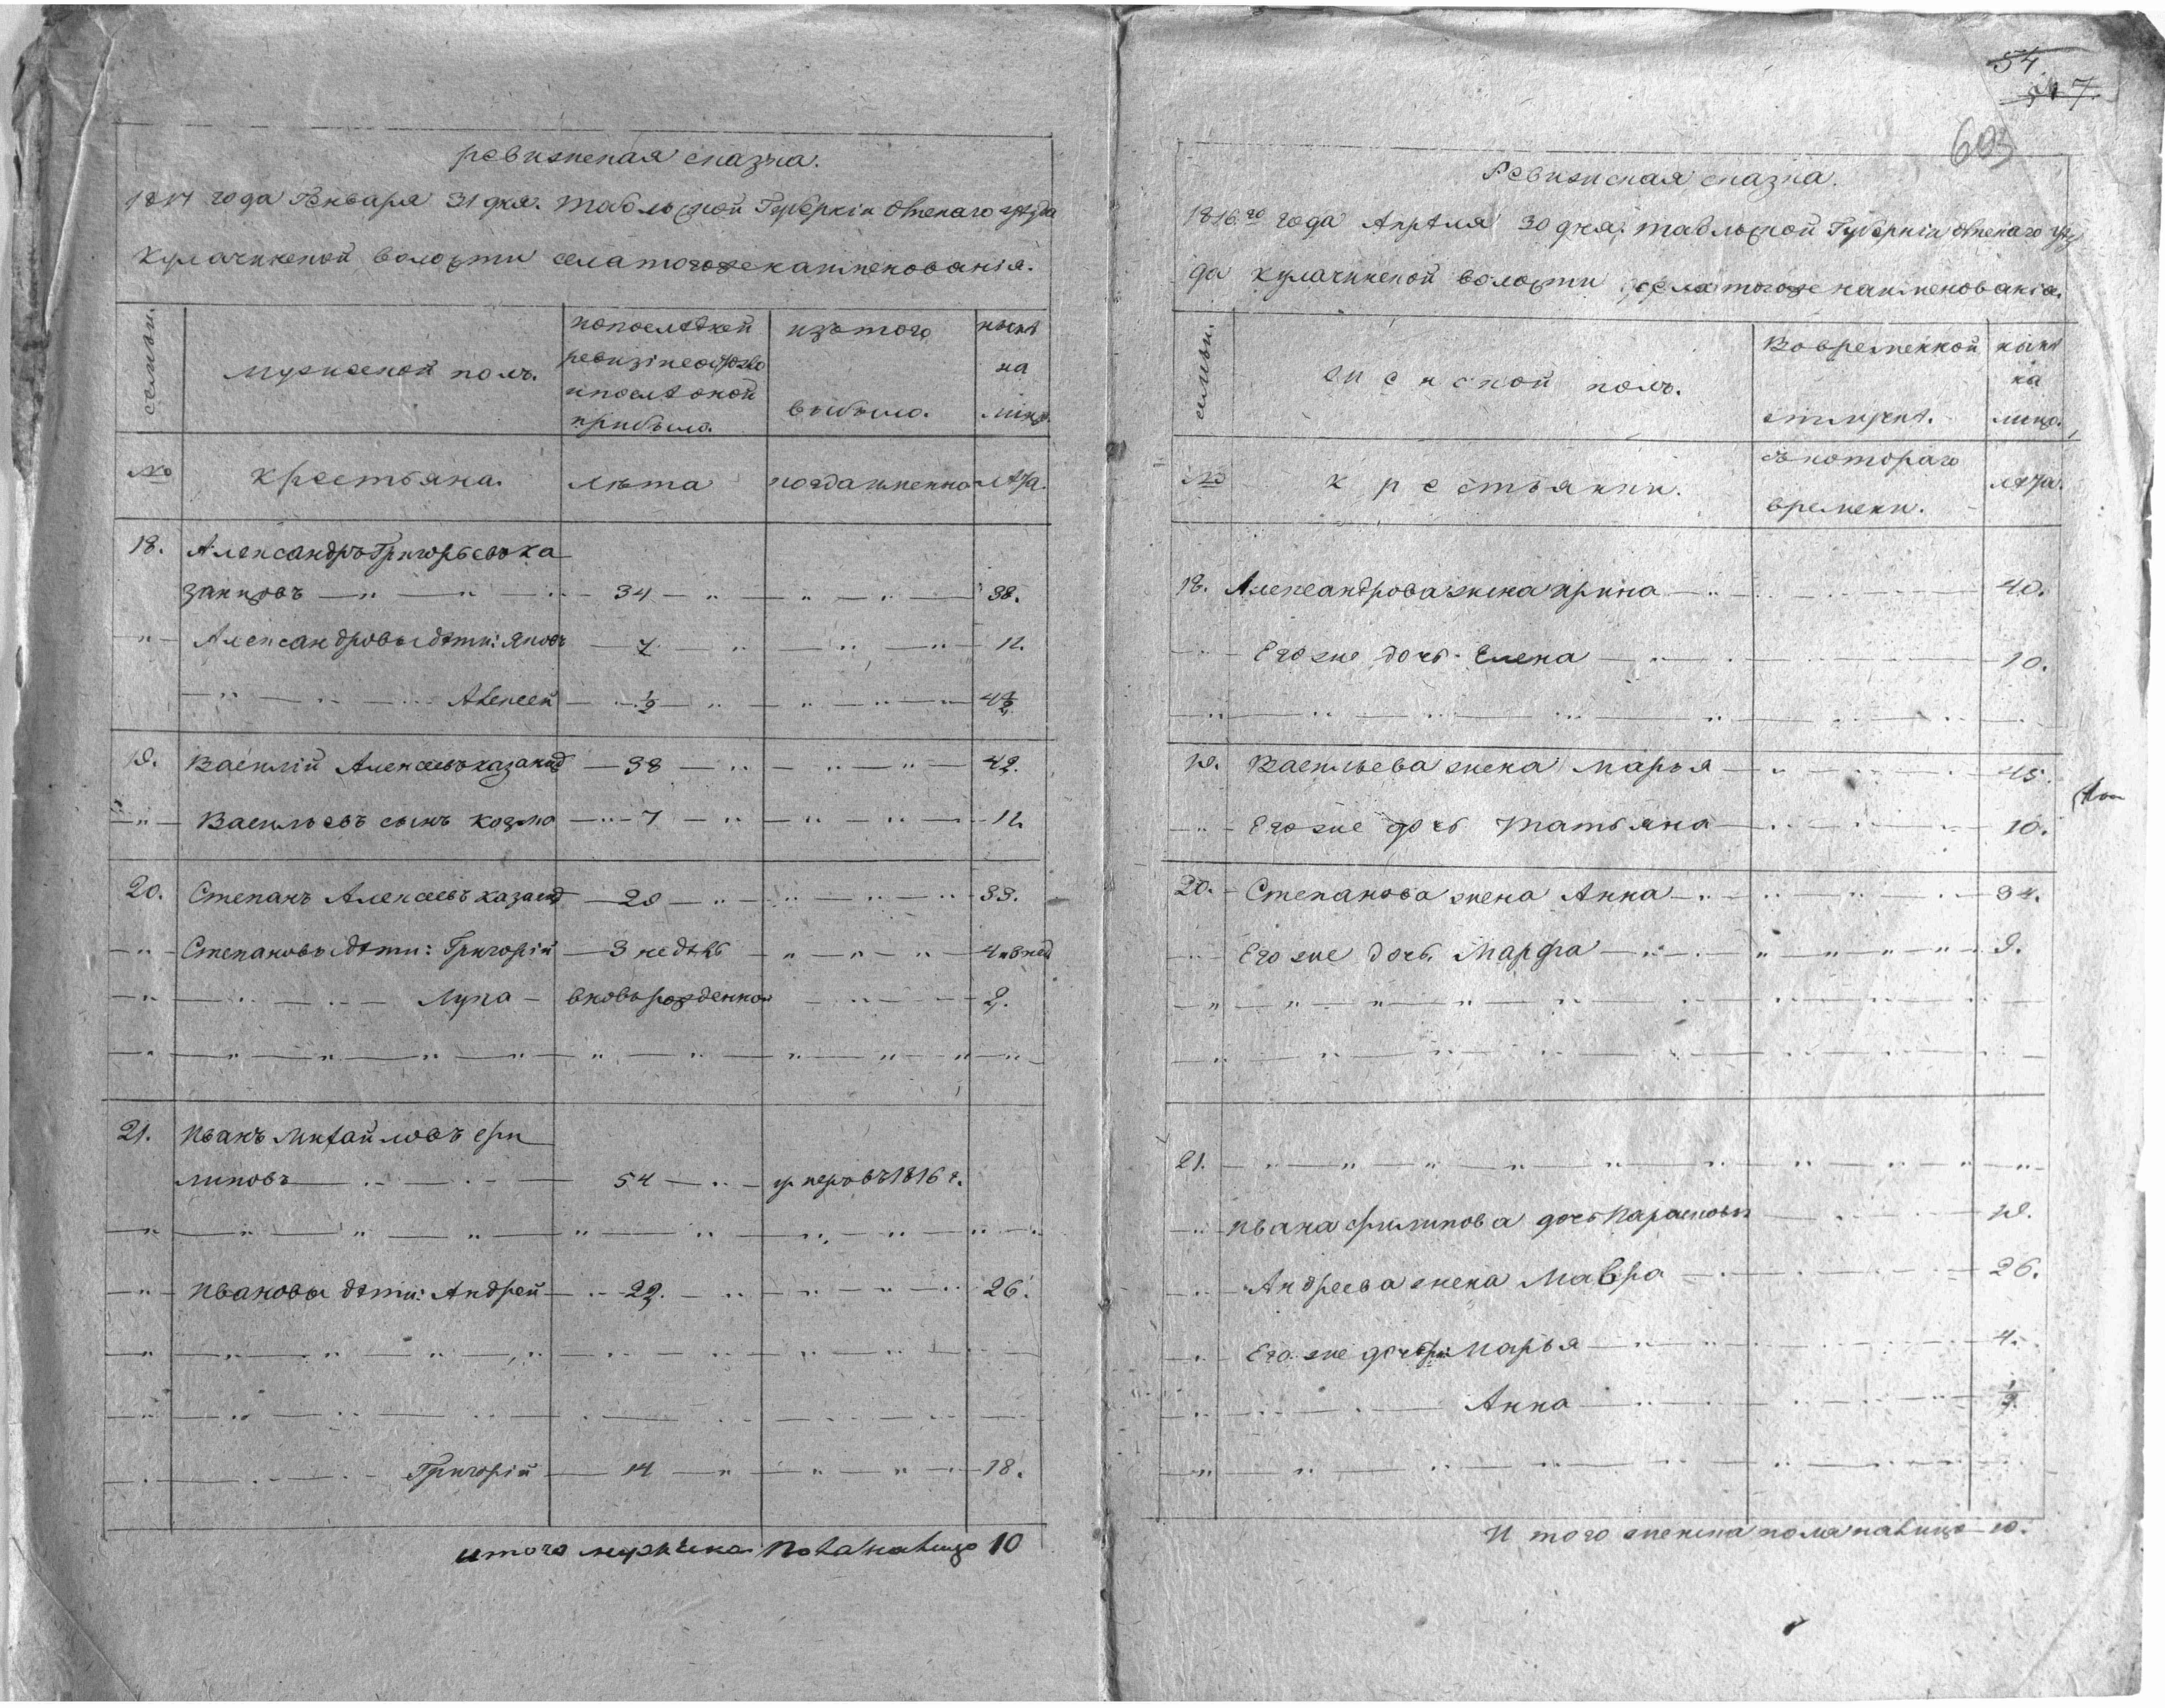 ревижская сказка.
181 года Января 31 дня. Тобольской Губернии Омскаго уезда
Кулачинской волости села тогоже наименованія.
семьи.
мужеской полъ.
попоследней
ревизіи состояло
ипосле оной
прибыло.
изътого
выбыло.
ныне
на
лицо.
№
крестьяна.
лѣта
когдаименно
лѣта.
18. Александръ Григорьевъ ка
занцовъ 34 38.
Александровы дѣти: Яковъ 7 12.
Алексей ½ 4½
19. Василій Алексеевъ казанцо 38 42.
Васильевъ сынъ козма 7 12
20. Степанъ Алексеевъ казанцо 29 33.
Степановы дѣти: Григорій 3 недѣль 4и3нед
Лука вновьрожденной 2.
21. Иванъ Михайловъ фи
липовъ 54 умеръвъ1816 г.
Ивановы дѣти: Андрей 22. 26.
Григорій 14 18.
итого мужеска пола налицо 10
54
7.
603
Ревижская сказка.
1816го года Апрѣля 30 дня; Тобольской Губерніи Омскаго уез
да кулачинской волости села тогоже наименованія.
семьи.
женской полъ.
Вовременной
отлучке.
ныне
на
лицо.
№
крестьянки.
съкотораго
времени.
лѣта.
18. Александрова жена ирина 40.
Егоже дочь Елена 10.
19. Васильева жена марья 45.
Егоже дочь Татьяна 10.
20. Степанова жена Анна 34.
Егоже дочь Марфа 9.
21.
ивана филипова дочь Парасковья 19.
Андреева жена Мавра 26.
Егоже дочери Марья 4.
Анна ½
И того женска пола налицо 10.